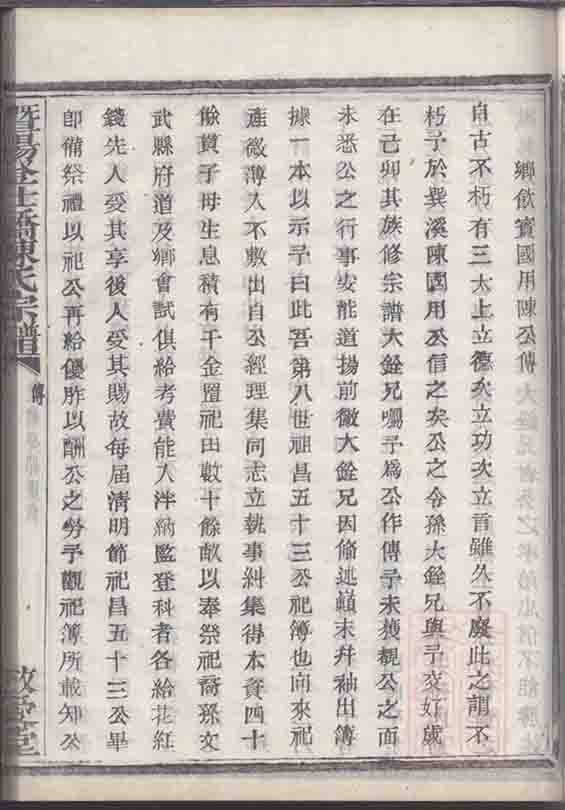 鄉飲賓國用陳公傳
自古不朽有三太上立德次立功次立言雖久不廢此之謂不
朽予於巽溪陳國用公信之矣公之令孫大銓兄與予交好歲
在己卯其族修宗譜大銓兄囑予為公作傳予未獲親公之面
未悉公之行事安能道揚前徽大銓兄因條述巔末幷袖出簿
據一本以示予曰此吾第八世祖昌五十三公祀簿也向來祀
產微薄入不敷出自公經理集同志立執事糾集得本資四十
餘貫子母生息積有千金置祀田數十餘畝以奉祭祀裔孫文
武縣府道及鄉會試俱給考費能入泮納監登科者各給花紅
錢先人受其享後人受其賜故每屆清明節祀昌五十三公畢
卽備祭禮以祀公再給優胙以酬公之勞予觀祀簿所載知公
傳